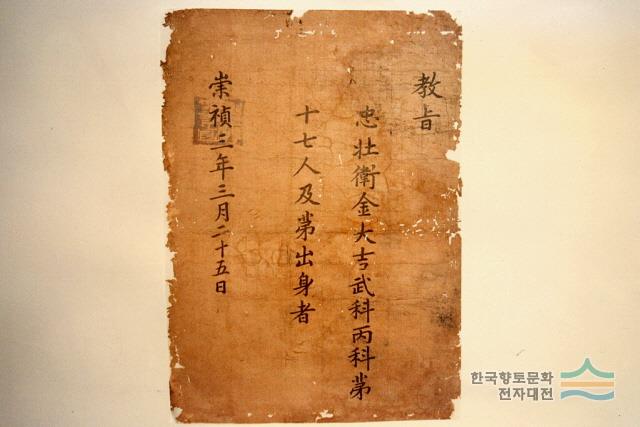 教旨
忠壯衛金大吉武科丙科第
十七人及第出身者
崇禎三年三月二十五日
한국향토문화
전자대전